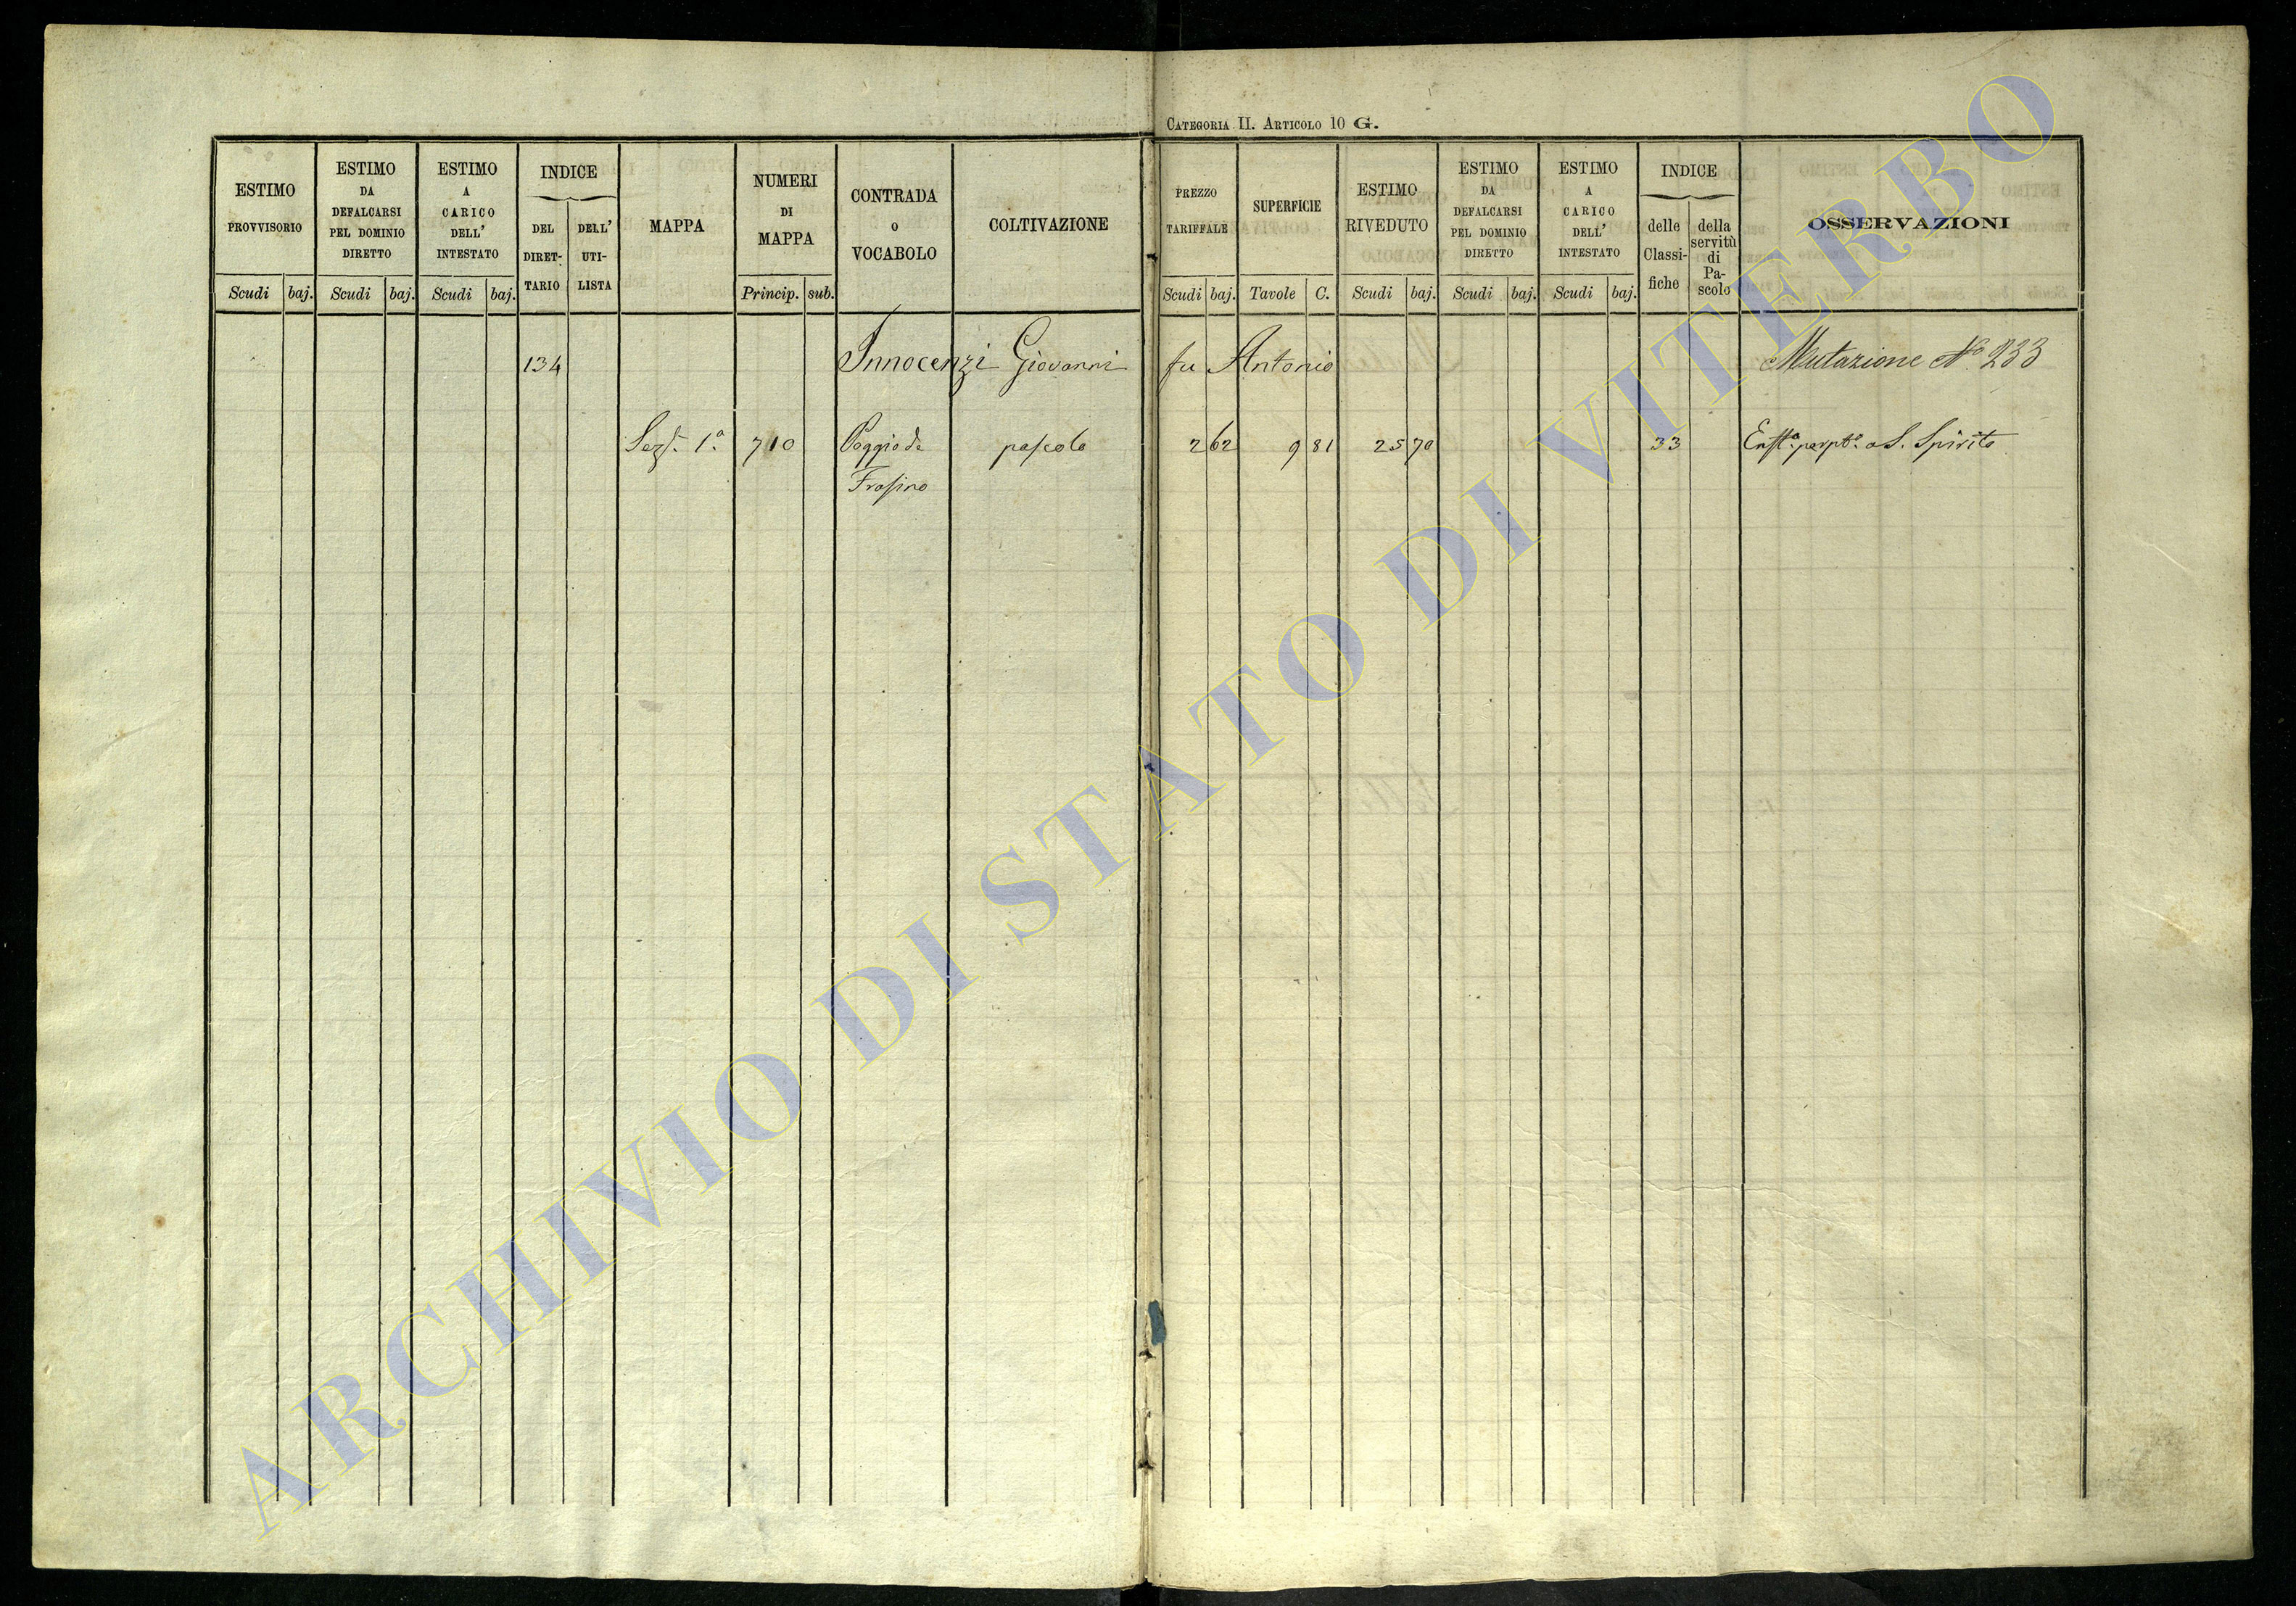 CATEGORIA II. ARTICOLO 10 G.
ESTIMO PROVVISORIO
Scudi baj.
ESTIMO DA DEFALCARSI PEL DOMINIO DIRETTO
Scudi baj.
ESTIMO A CARICO DELL' INTESTATO
Scudi baj.
INDICE
DEL DIRET-TARIO
DELL' UTI-LISTA
MAPPA
NUMERI DI MAPPA
Princip. sub.
CONTRADA O VOCABOLO
COLTIVAZIONE
PREZZO TARIFFALE
Scudi baj.
SUPERFICIE
Tavole C.
ESTIMO RIVEDUTO
Scudi baj.
ESTIMO DA DEFALCARSI PEL DOMINIO DIRETTO
Scudi baj.
ESTIMO A CARICO DELL' INTESTATO
Scudi baj.
INDICE
delle Classi-fiche
della servitù di Pa-scolo
OSSERVAZIONI
134 Innocenzi Giovanni fu Antonio Mutazione No. 233
1a 710 Poggio de pascolo 2 62 9 81 25 70 33 a S. Spirito
Frasino
ARCHIVIO DI STATO DI VITERBO